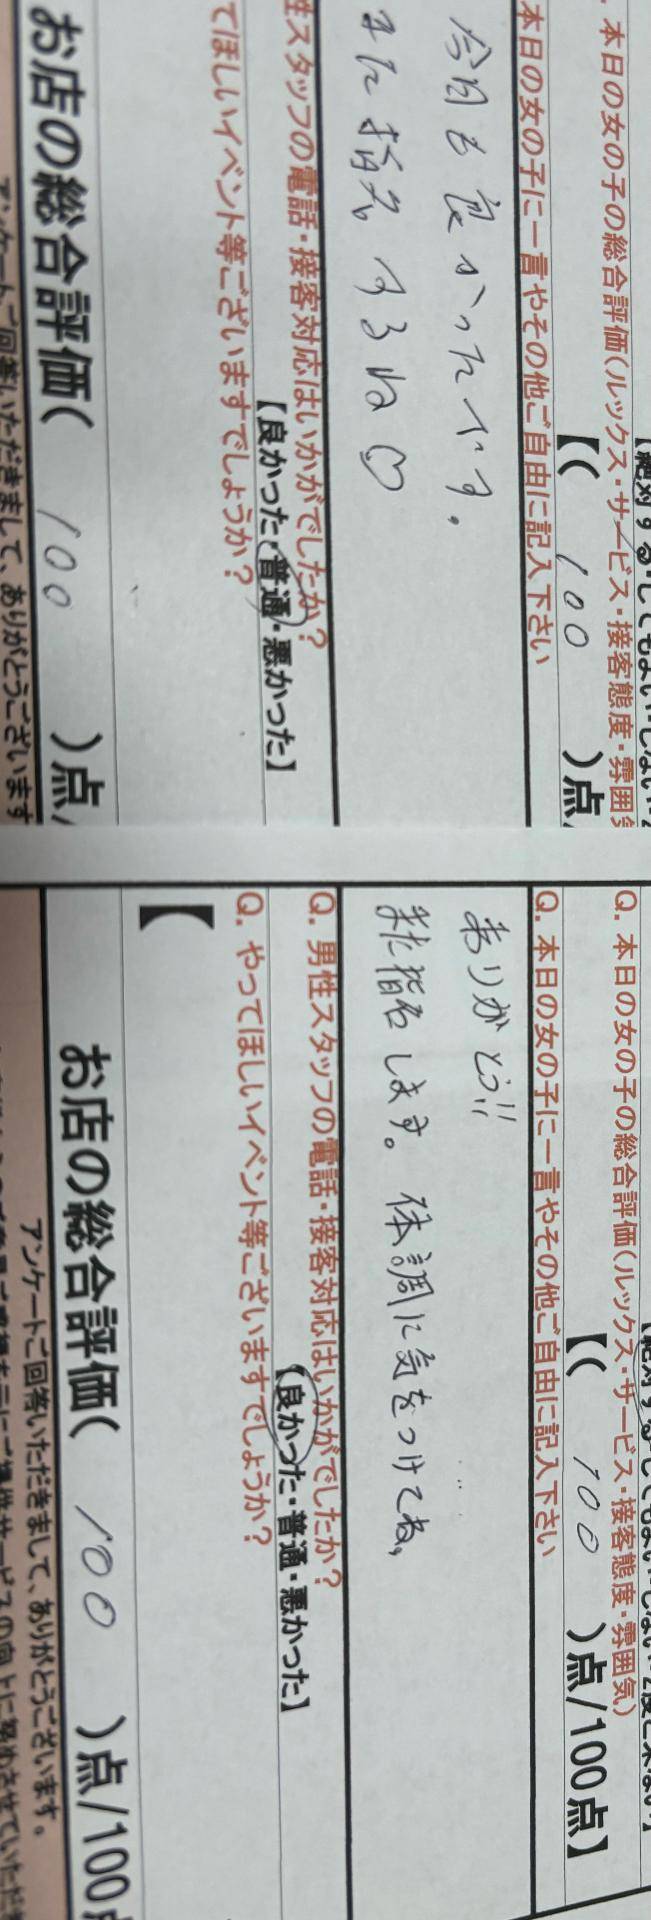 本日の女の子の総合評価(ルックス・サービス・接客態度・雰囲気
【( 100 )点/
本日の女の子に一言やその他ご自由に記入下さい
今日も良かったです。
また指名するね♡
性スタッフの電話・接客対応はいかがでしたか?
【良かった・普通・悪かった】
てほしいイベント等ございますでしょうか?
お店の総合評価( 100 )点/
アンケートご回答いただきまして、ありがとうございます
Q. 本日の女の子の総合評価(ルックス・サービス・接客態度・雰囲気)
【( 100 )点/100点】
Q. 本日の女の子に一言やその他ご自由に記入下さい
ありがとう!!
また指名します。体調に気をつけてね。
Q. 男性スタッフの電話・接客対応はいかがでしたか?
【良かった・普通・悪かった】
Q. やってほしいイベント等ございますでしょうか?
【
お店の総合評価( 100 )点/100点
アンケートご回答いただきまして、ありがとうございます。